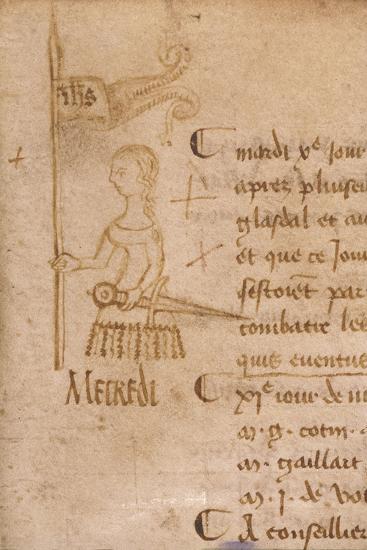 ihs
MECREDI
mardi xe Jour
apres plusie
glasdal et au
et que ce Jou
sestoient par
combatre les
quis eventus
xie jour de
m. g. cotin.
m. gaillart
m. J. de
A conseillier